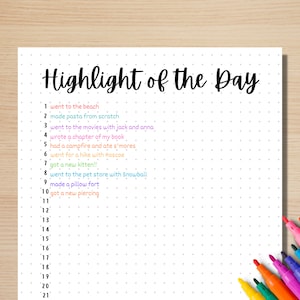 Highlight of the Day
1 went to the beach
2 made pasta from scratch
3 went to the movies with jack and anna
4 wrote a chapter of my book
5 had a campfire and ate s'mores
6 went for a hike with moose
7 got a new kitten!!
8 went to the pet store with snowball
9 made a pillow fort
10 got a new piercing
11
12
13
14
15
16
17
18
19
20
21